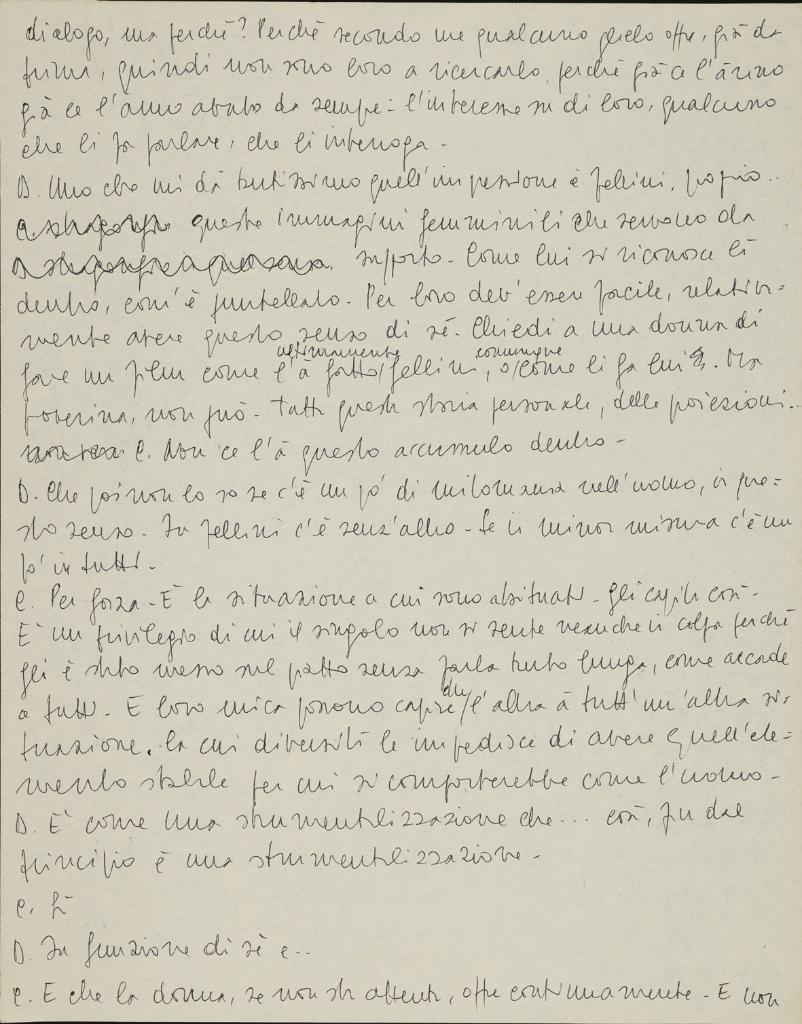 dialogo, ma perché? Perché secondo me qualcuno glielo offre, già da
prima, quindi non sono loro a ricercarlo, perché già ce l'ànno
già ce l'anno avuto da sempre: l'interesse su di loro, qualcuno
che li fa parlare, che li interroga.
D. Uno che mi dà tantissimo quell'impressione è Fellini, proprio..
queste immagini femminili che servono da
supporto. Come lui si riconosce lì
dentro, com'è puntellato. Per loro dev'essere facile, relativa=
mente avere questo senso di sé. Chiedi a una donna di
fare un film come l'à fatto ultimamente Fellini, o comunque come li fa lui. Ma
poverina, non può. Tutta questa storia personale, delle proiezioni..
C. Non ce l'à questo accumulo dentro.
D. Che poi non lo so se c'è un po' di mitomania nell'uomo, in que=
sto senso. In Fellini c'è senz'altro. Se in minor misura c'è un
po' in tutti.
C. Per forza. È la situazione a cui sono abituati. Gli capita così.
È un privilegio di cui il singolo non si sente neanche in colpa perché
gli è stato messo sul piatto senza farla tanto lunga, come accade
a tutti. E loro mica possono capire che l'altra à tutt'un'altra si=
tuazione. La cui diversità le impedisce di avere quell'ele=
mento stabile per cui si comporterebbe come l'uomo.
D. È come una strumentalizzazione che... così, fin dal
principio è una strumentalizzazione.
C. Sì
D. In funzione di sé e..
C. E che la donna, se non sta attenta, offre continuamente. E non